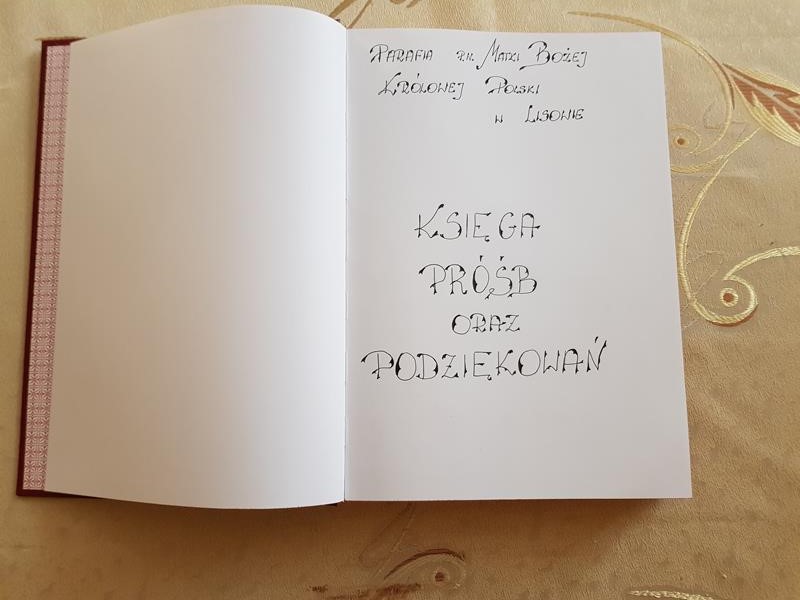 PARAFIA P.W. MATKI BOŻEJ
KRÓLOWEJ POLSKI
W LISOWIE
KSIĘGA
PRÓŚB
ORAZ
PODZIĘKOWAŃ